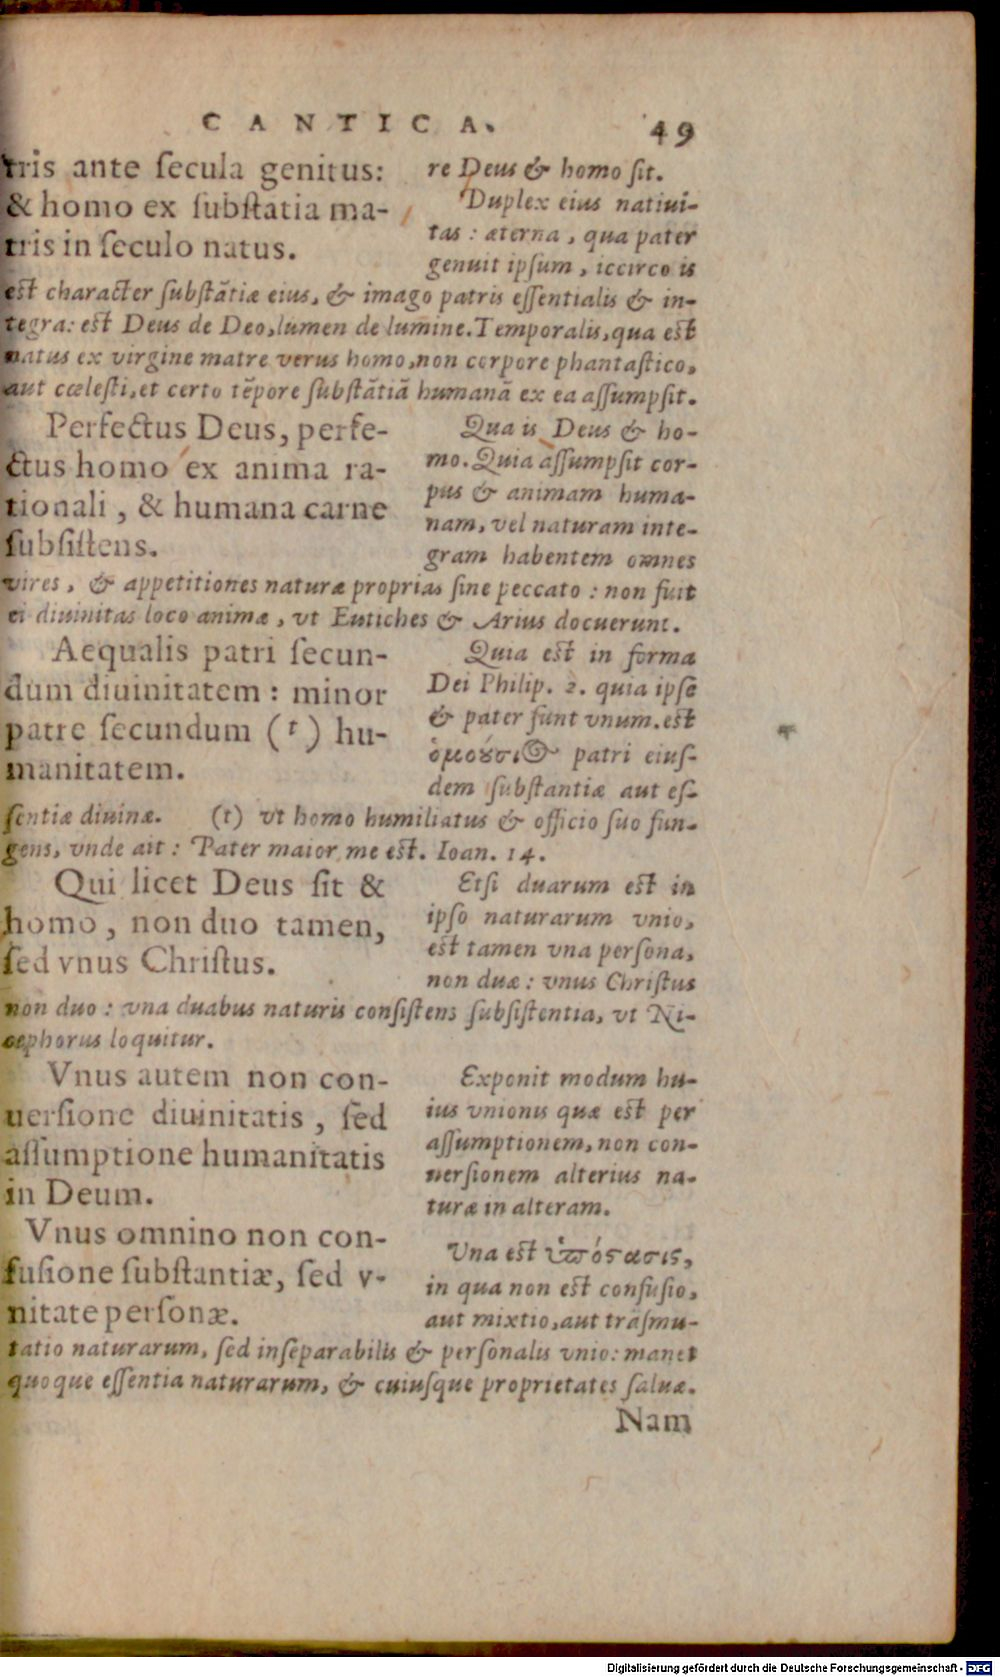 CANTICA. 49
tris ante secula genitus:
& homo ex substātia ma-
tris in seculo natus.
re Deus & homo sit.
Duplex eius natiui-
tas: æterna, qua pater
genuit ipsum, iccirco is
est character substātiæ eius, & imago patris essentialis & in-
tegra: est Deus de Deo, lumen de lumine. Temporalis, qua est
natus ex virgine matre verus homo, non corpore phantastico,
aut cœlesti, et certo tēpore substātiā humanā ex ea assumpsit.
Perfectus Deus, perfe-
ctus homo ex anima ra-
tionali, & humana carne
subsistens.
Qua is Deus & ho-
mo. Quia assumpsit cor-
pus & animam huma-
nam, vel naturam inte-
gram habentem omnes
vires, & appetitiones naturæ proprias sine peccato: non fuit
ei diuinitas loco animæ, vt Eutiches & Arius docuerunt.
Aequalis patri secun-
dum diuinitatem: minor
patre secundum (t) hu-
manitatem.
Quia est in forma
Dei Philip. 2. quia ipse
& pater sunt vnum. est
ὁμούσιος patri eius-
dem substantiæ aut es-
sentiæ diuinæ. (t) vt homo humiliatus & officio suo fun-
gens, vnde ait: Pater maior me est. Ioan. 14.
Qui licet Deus sit &
homo, non duo tamen,
sed vnus Christus.
Etsi duarum est in
ipso naturarum vnio,
est tamen vna persona,
non duæ: vnus Christus
non duo: vna duabus naturis consistens subsistentia, vt Ni-
cephorus loquitur.
Vnus autem non con-
uersione diuinitatis, sed
assumptione humanitatis
in Deum.
Exponit modum hu-
ius vnionis quæ est per
assumptionem, non con-
uersionem alterius na-
turæ in alteram.
Vnus omnino non con-
fusione substantiæ, sed v-
nitate personæ.
Una est ὑπόστασις,
in qua non est confusio,
aut mixtio, aut trāsmu-
tatio naturarum, sed inseparabilis & personalis vnio: manet
quoque essentia naturarum, & cuiusque proprietates saluæ.
Nam
Digitalisierung gefördert durch die Deutsche Forschungsgemeinschaft - DFG